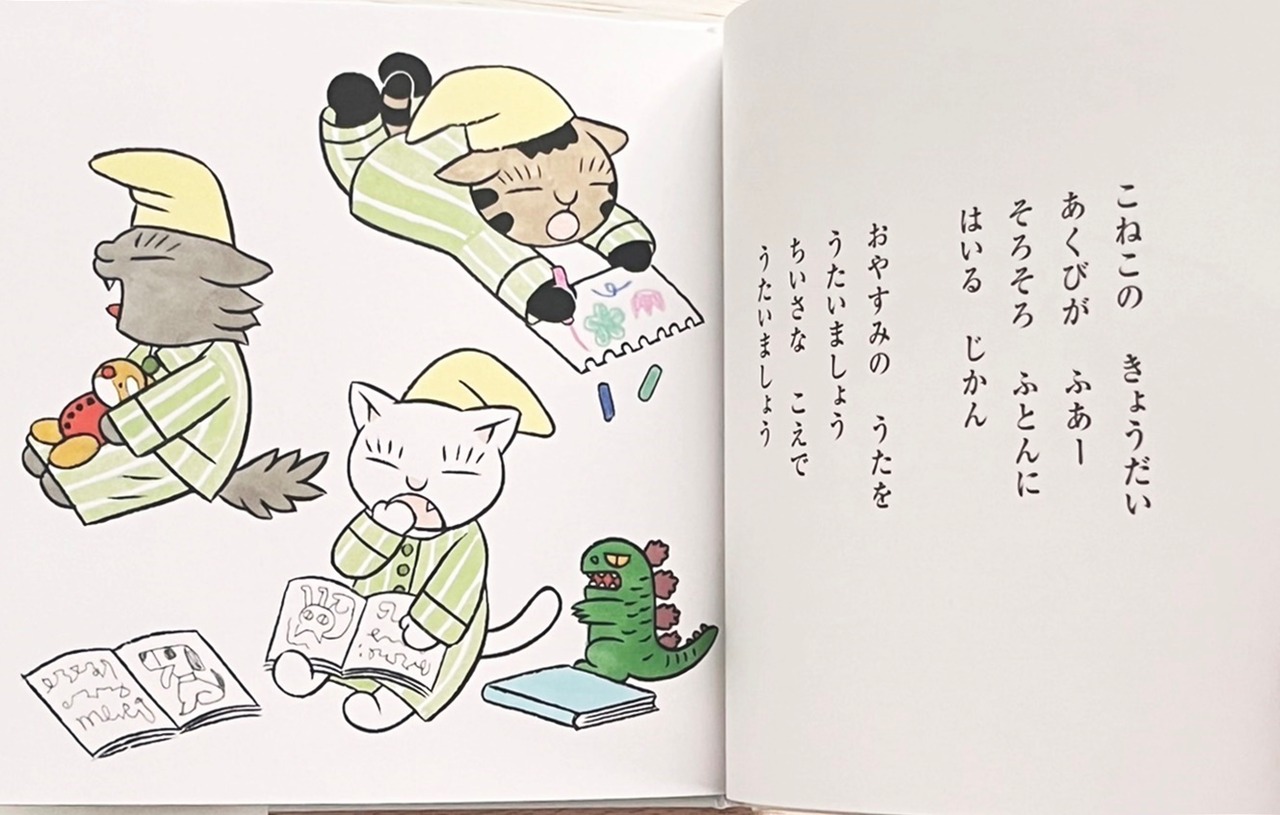 こねこの　きょうだい
あくびが　ふあー
そろそろ　ふとんに
はいる　じかん
おやすみの　うたを
うたいましょう
ちいさな　こえで
うたいましょう